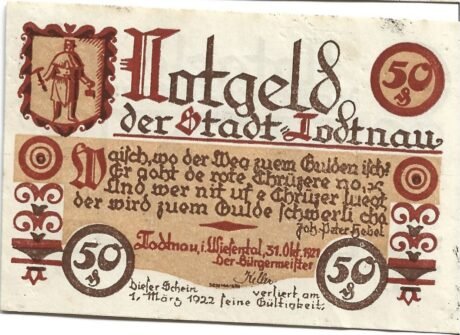 Notgeld
der Stadt Todtnau
50
₰
Waisch, wo der Weg zuem Gulden isch?
Er goht de rote Chrüzere no,
Und wer nit uf e Chrüzer luegt
der wird zuem Gulde schwerli cho
Joh. Peter Hebel
Todtnau, i. Wiesental, 31. Okt. 1921
Der Bürgermeister
Keller
50
₰
50
₰
Dieser Schein verliert am
1. März 1922 seine Gültigkeit.